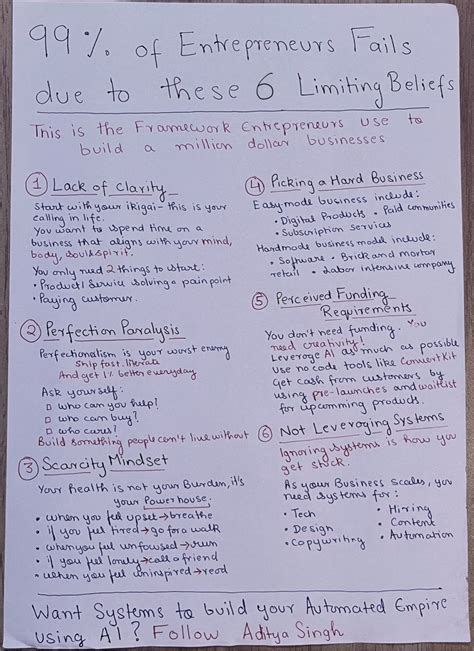 99% of Entrepreneurs Fails
due to these 6 Limiting Beliefs
This is the Framework Entrepreneurs use to
build a million dollar businesses
① Lack of Clarity
Start with your ikigai - this is your
calling in life.
You want to spend time on a
business that aligns with your mind,
body, soul & spirit.
You only need 2 things to start:
• Product/Service solving a pain point
• Paying customer.
② Perfection Paralysis
Perfectionalism is your worst enemy
Ship fast, iterate
And get 1% better everyday
Ask yourself:
□ who can you help?
□ who can buy?
□ who cares?
Build something people can't live without
③ Scarcity Mindset
Your health is not your Burden, it's
your Powerhouse:
• when you feel upset → breathe
• if you feel tired → go for a walk
• when you feel unfocused → run
• if you feel lonely → call a friend
• when you feel uninspired → read
④ Picking a Hard Business
Easymode business include:
• Digital Products • Paid communities
• Subscription Services
Hardmode business model include:
• Software • Brick and mortar
retail • Labor intensive company
⑤ Perceived Funding
Requirements
You don't need funding. You
need creativity!
Leverage AI as much as possible
Use no code tools like ConvertKit
Get cash from customers by
using pre-launches and waitlist
for upcomming products.
⑥ Not Leveraging Systems
Ignoring systems is how you
get stuck.
As your Business scales, you
need systems for:
• Tech • Hiring
• Design • Content
• Copywriting • Automation
Want Systems to build your Automated Empire
using AI? Follow Aditya Singh